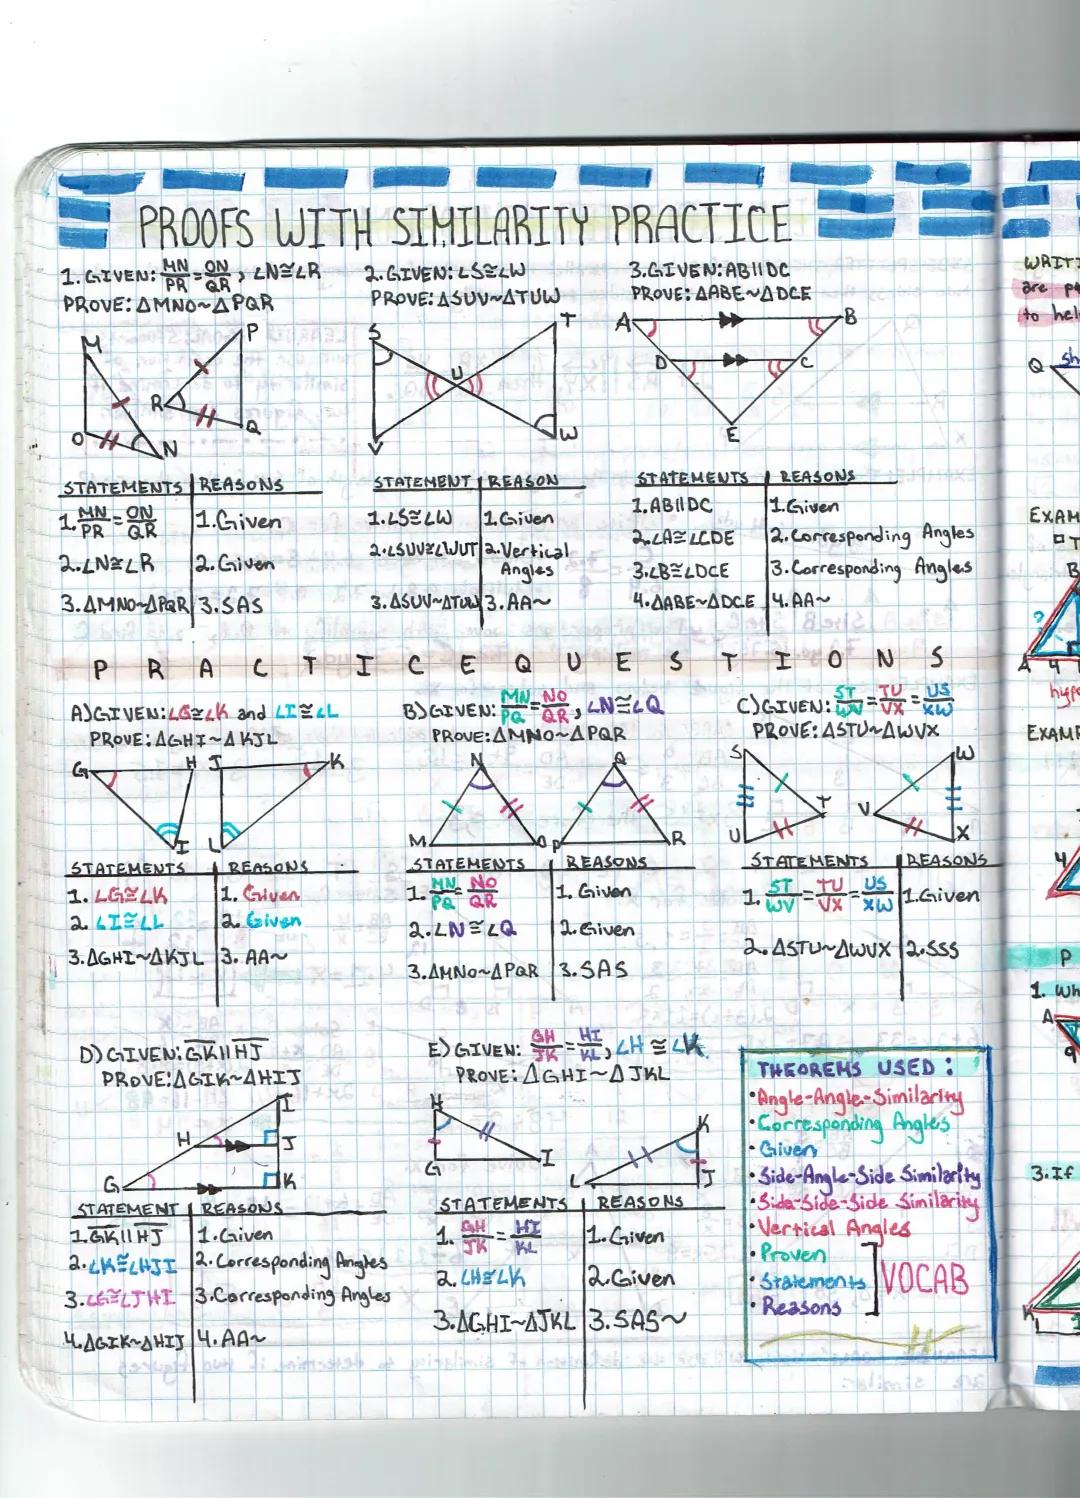 PROOFS WITH SIMILARITY PRACTICE
1. GIVEN: MN/PR = ON/QR, ∠N≅∠R
PROVE: ΔMNO~ΔPQR
M
P
R
O
N
Q
STATEMENTS | REASONS
1. MN/PR = ON/QR | 1. Given
2. ∠N≅∠R | 2. Given
3. ΔMNO~ΔPQR | 3. SAS
2. GIVEN: ∠S≅∠W
PROVE: ΔSUV~ΔTUW
S
T
U
V
W
STATEMENT | REASON
1. ∠S≅∠W | 1. Given
2. ∠SUV≅∠WUT | 2. Vertical
Angles
3. ΔSUV~ΔTUW | 3. AA~
3. GIVEN: AB||DC
PROVE: ΔABE~ΔDCE
A
B
D
C
E
STATEMENTS | REASONS
1. AB||DC | 1. Given
2. ∠A≅∠CDE | 2. Corresponding Angles
3. ∠B≅∠DCE | 3. Corresponding Angles
4. ΔABE~ΔDCE | 4. AA~
PRACTICE QUESTIONS
A) GIVEN: ∠G≅∠K and ∠I≅∠L
PROVE: ΔGHI~ΔKJL
G
H
J
K
I
L
STATEMENTS | REASONS
1. ∠G≅∠K | 1. Given
2. ∠I≅∠L | 2. Given
3. ΔGHI~ΔKJL | 3. AA~
B) GIVEN: MN/PQ = NO/QR, ∠N≅∠Q
PROVE: ΔMNO~ΔPQR
N
Q
M
O
P
R
STATEMENTS | REASONS
1. MN/PQ = NO/QR | 1. Given
2. ∠N≅∠Q | 2. Given
3. ΔMNO~ΔPQR | 3. SAS
C) GIVEN: ST/WV = TU/VX = US/XW
PROVE: ΔSTU~ΔWVX
S
W
T
V
U
X
STATEMENTS | REASONS
1. ST/WV = TU/VX = US/XW | 1. Given
2. ΔSTU~ΔWVX | 2. SSS
D) GIVEN: GK||HJ
PROVE: ΔGIK~ΔHIJ
I
H
J
G
K
STATEMENT | REASONS
1. GK||HJ | 1. Given
2. ∠K≅∠HJI | 2. Corresponding Angles
3. ∠G≅∠JHI | 3. Corresponding Angles
4. ΔGIK~ΔHIJ | 4. AA~
E) GIVEN: GH/JK = HI/KL, ∠H≅∠K
PROVE: ΔGHI~ΔJKL
H
K
G
I
L
J
STATEMENTS | REASONS
1. GH/JK = HI/KL | 1. Given
2. ∠H≅∠K | 2. Given
3. ΔGHI~ΔJKL | 3. SAS~
THEOREMS USED:
• Angle-Angle-Similarity
• Corresponding Angles
• Given
• Side-Angle-Side Similarity
• Side-Side-Side Similarity
• Vertical Angles
• Proven
• Statements
• Reasons
VOCAB
are
to
Q
B
A
4
1. Wh
A
9
3. If
K